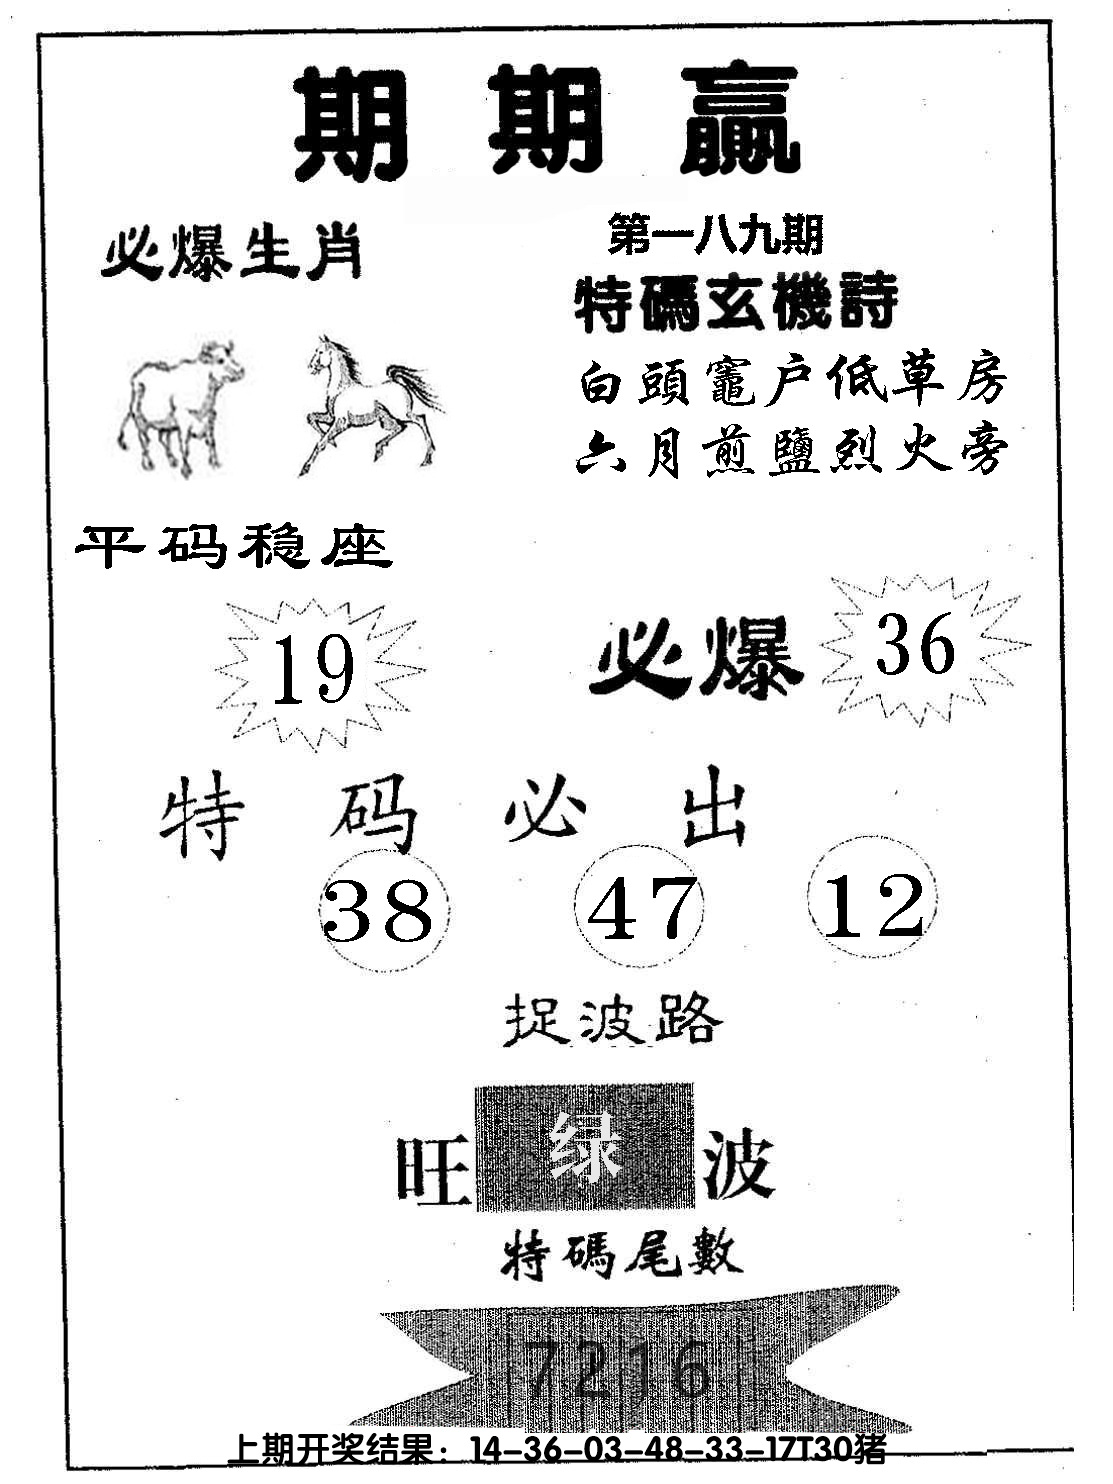 期期赢
必爆生肖
第一八九期
特碼玄機詩
白頭竈户低草房
六月煎鹽烈火旁
平码稳座
19
必爆 36
特码必出
38 47 12
捉波路
旺 绿 波
特碼尾數
7216
上期开奖结果：14-36-03-48-33-17T30猪